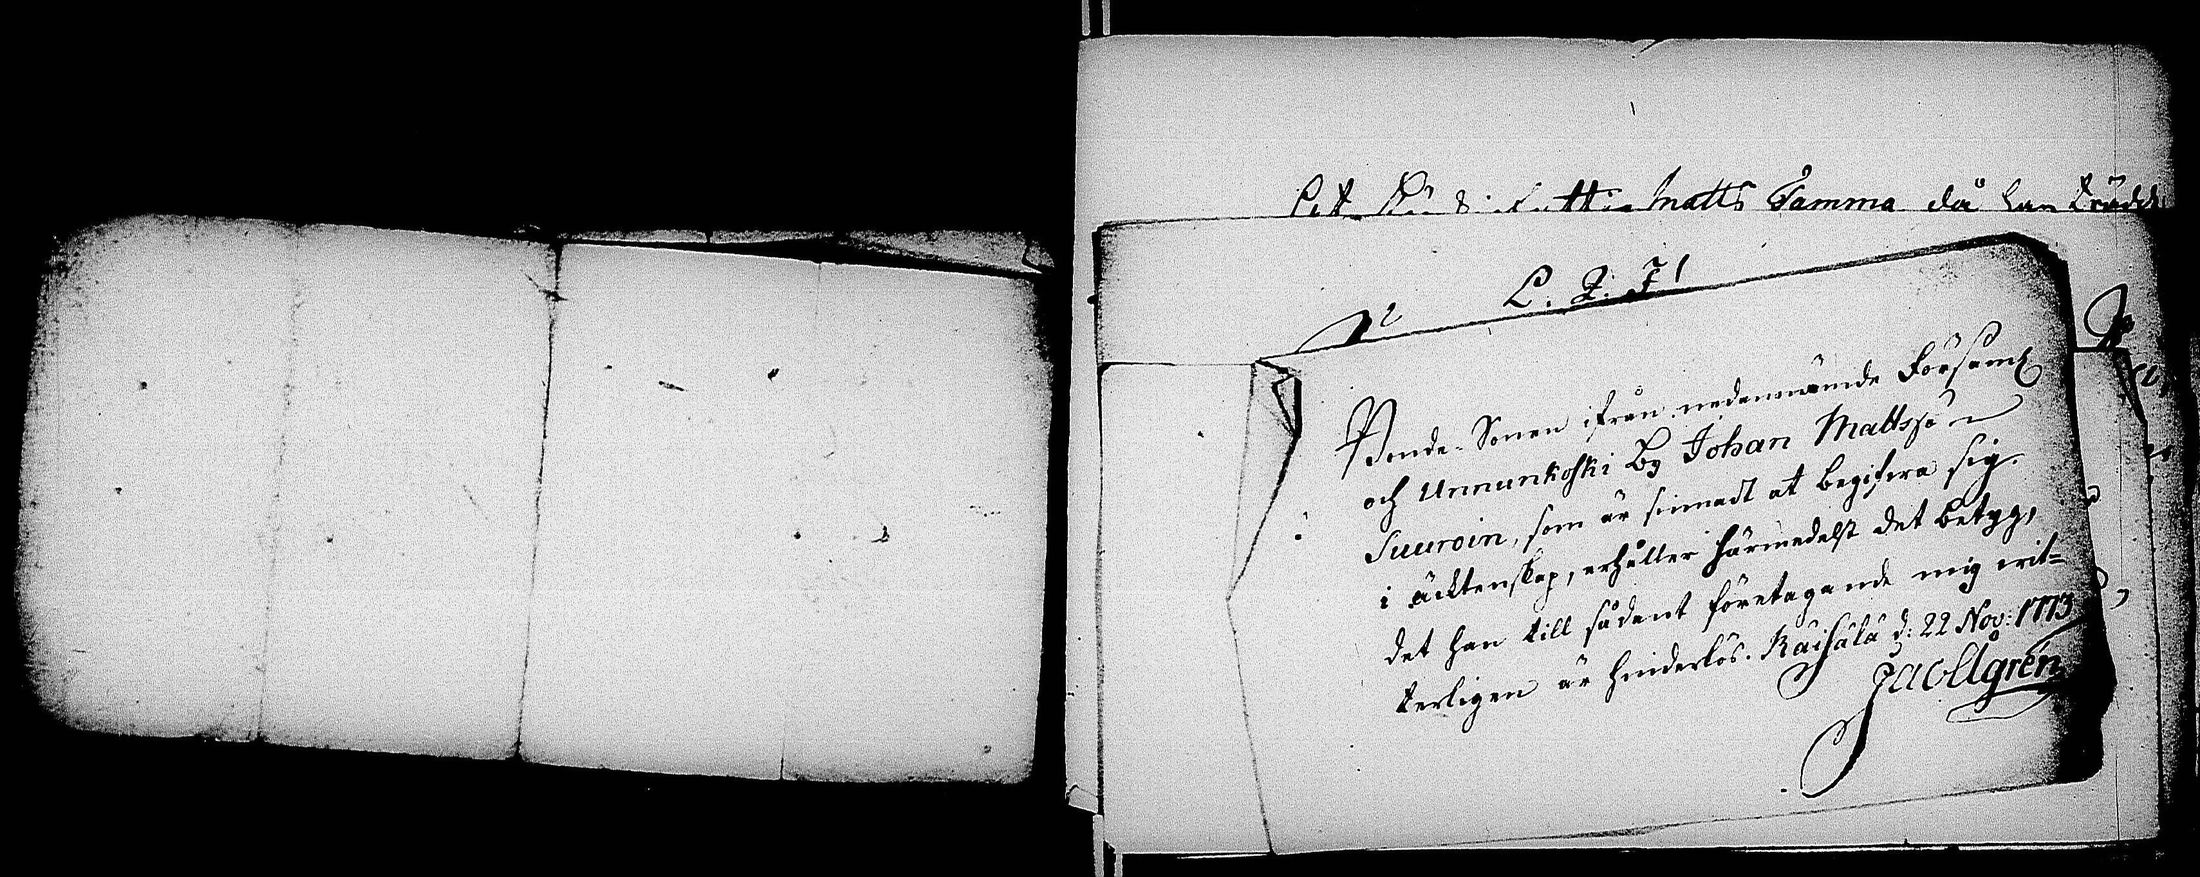 Matts Tamma då han trädde
L. J. J!
Bonde-Sonen ifrån nedannämnde Församl
och Unnunkoski By Johan Mattssön
Suuroin, som är sinnadt at begifwa sig
i äcktenskap, erhåller härmedelst det betyg,
det han till sådant företagande mig wit-
terligen är hinderlös. Räisälä d: 22 Nov: 1773